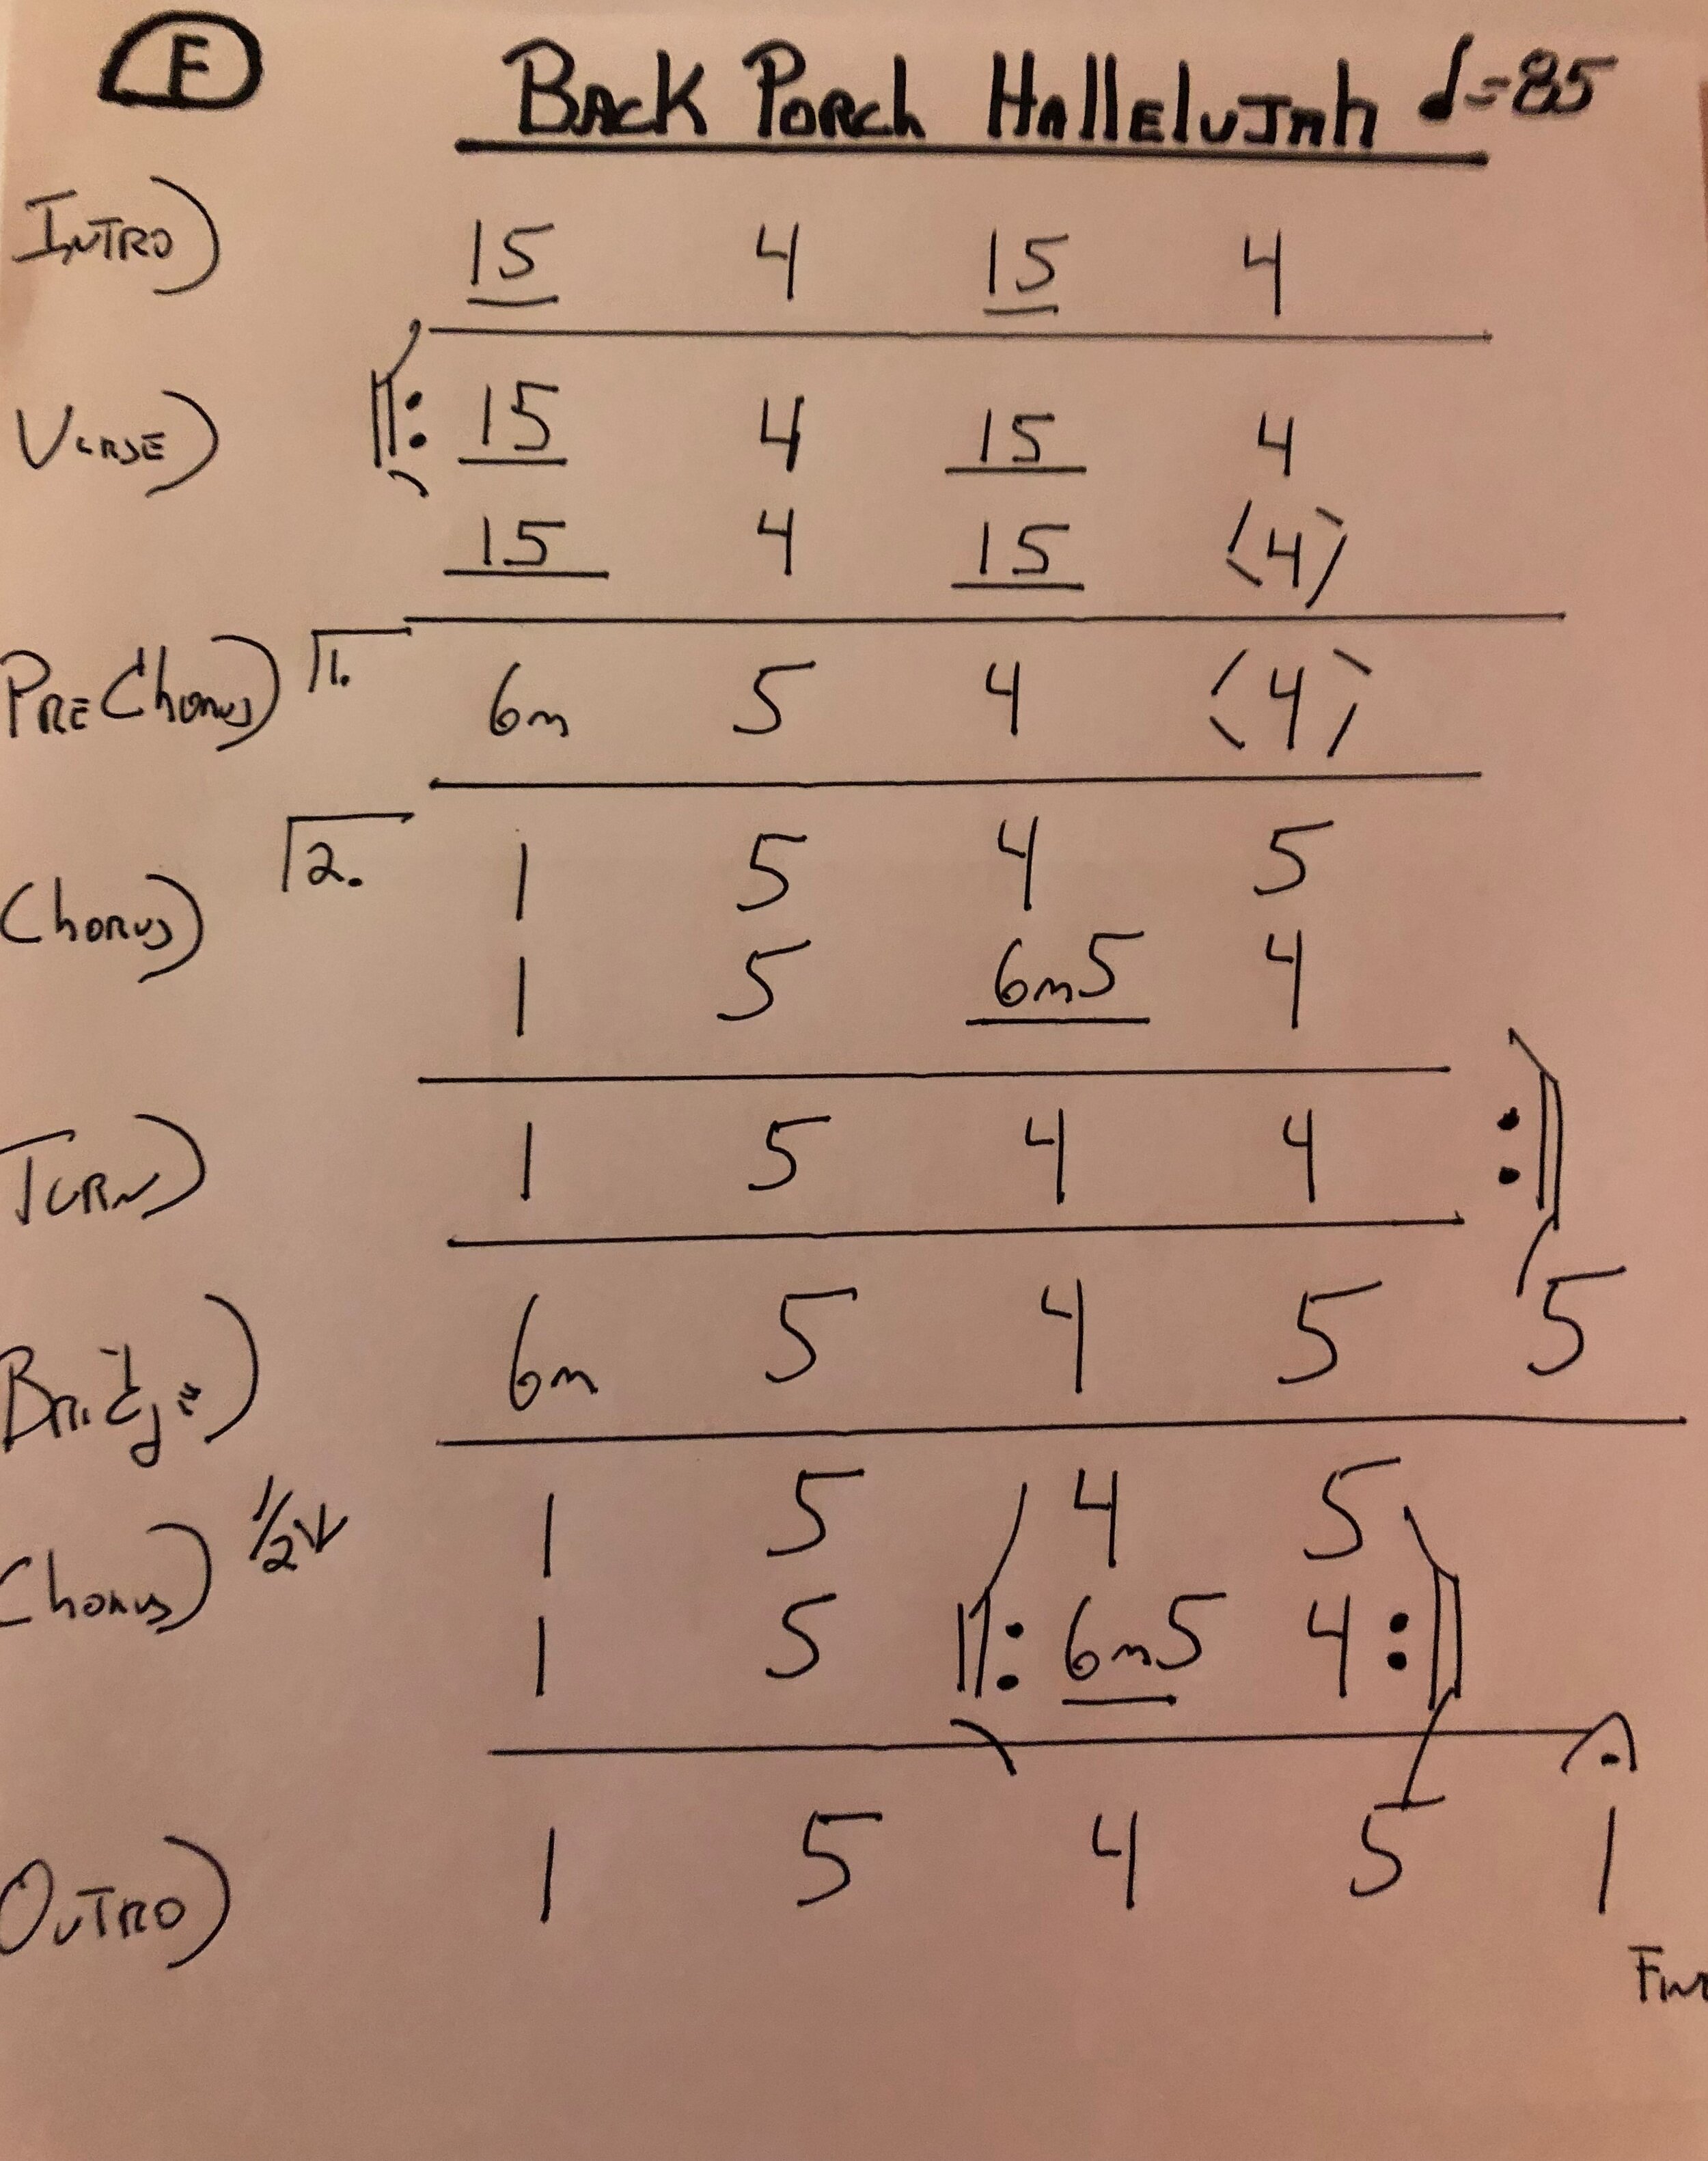 F BACK PORCH HALLELUJAH ♩=85
INTRO) 15 4 15 4
VERSE) 𝄆 15 4 15 4
15 4 15 ⟨4⟩
PRE Chorus) 1. 6m 5 4 ⟨4⟩
Chorus) 2. 1 5 4 5
1 5 6m5 4
TURN) 1 5 4 4 𝄇
Bridge) 6m 5 4 5 5
Chorus) 1/2↓ 1 5 4 5
1 5 𝄆 6m5 4 𝄇
OUTRO) 1 5 4 5 𝄐 1